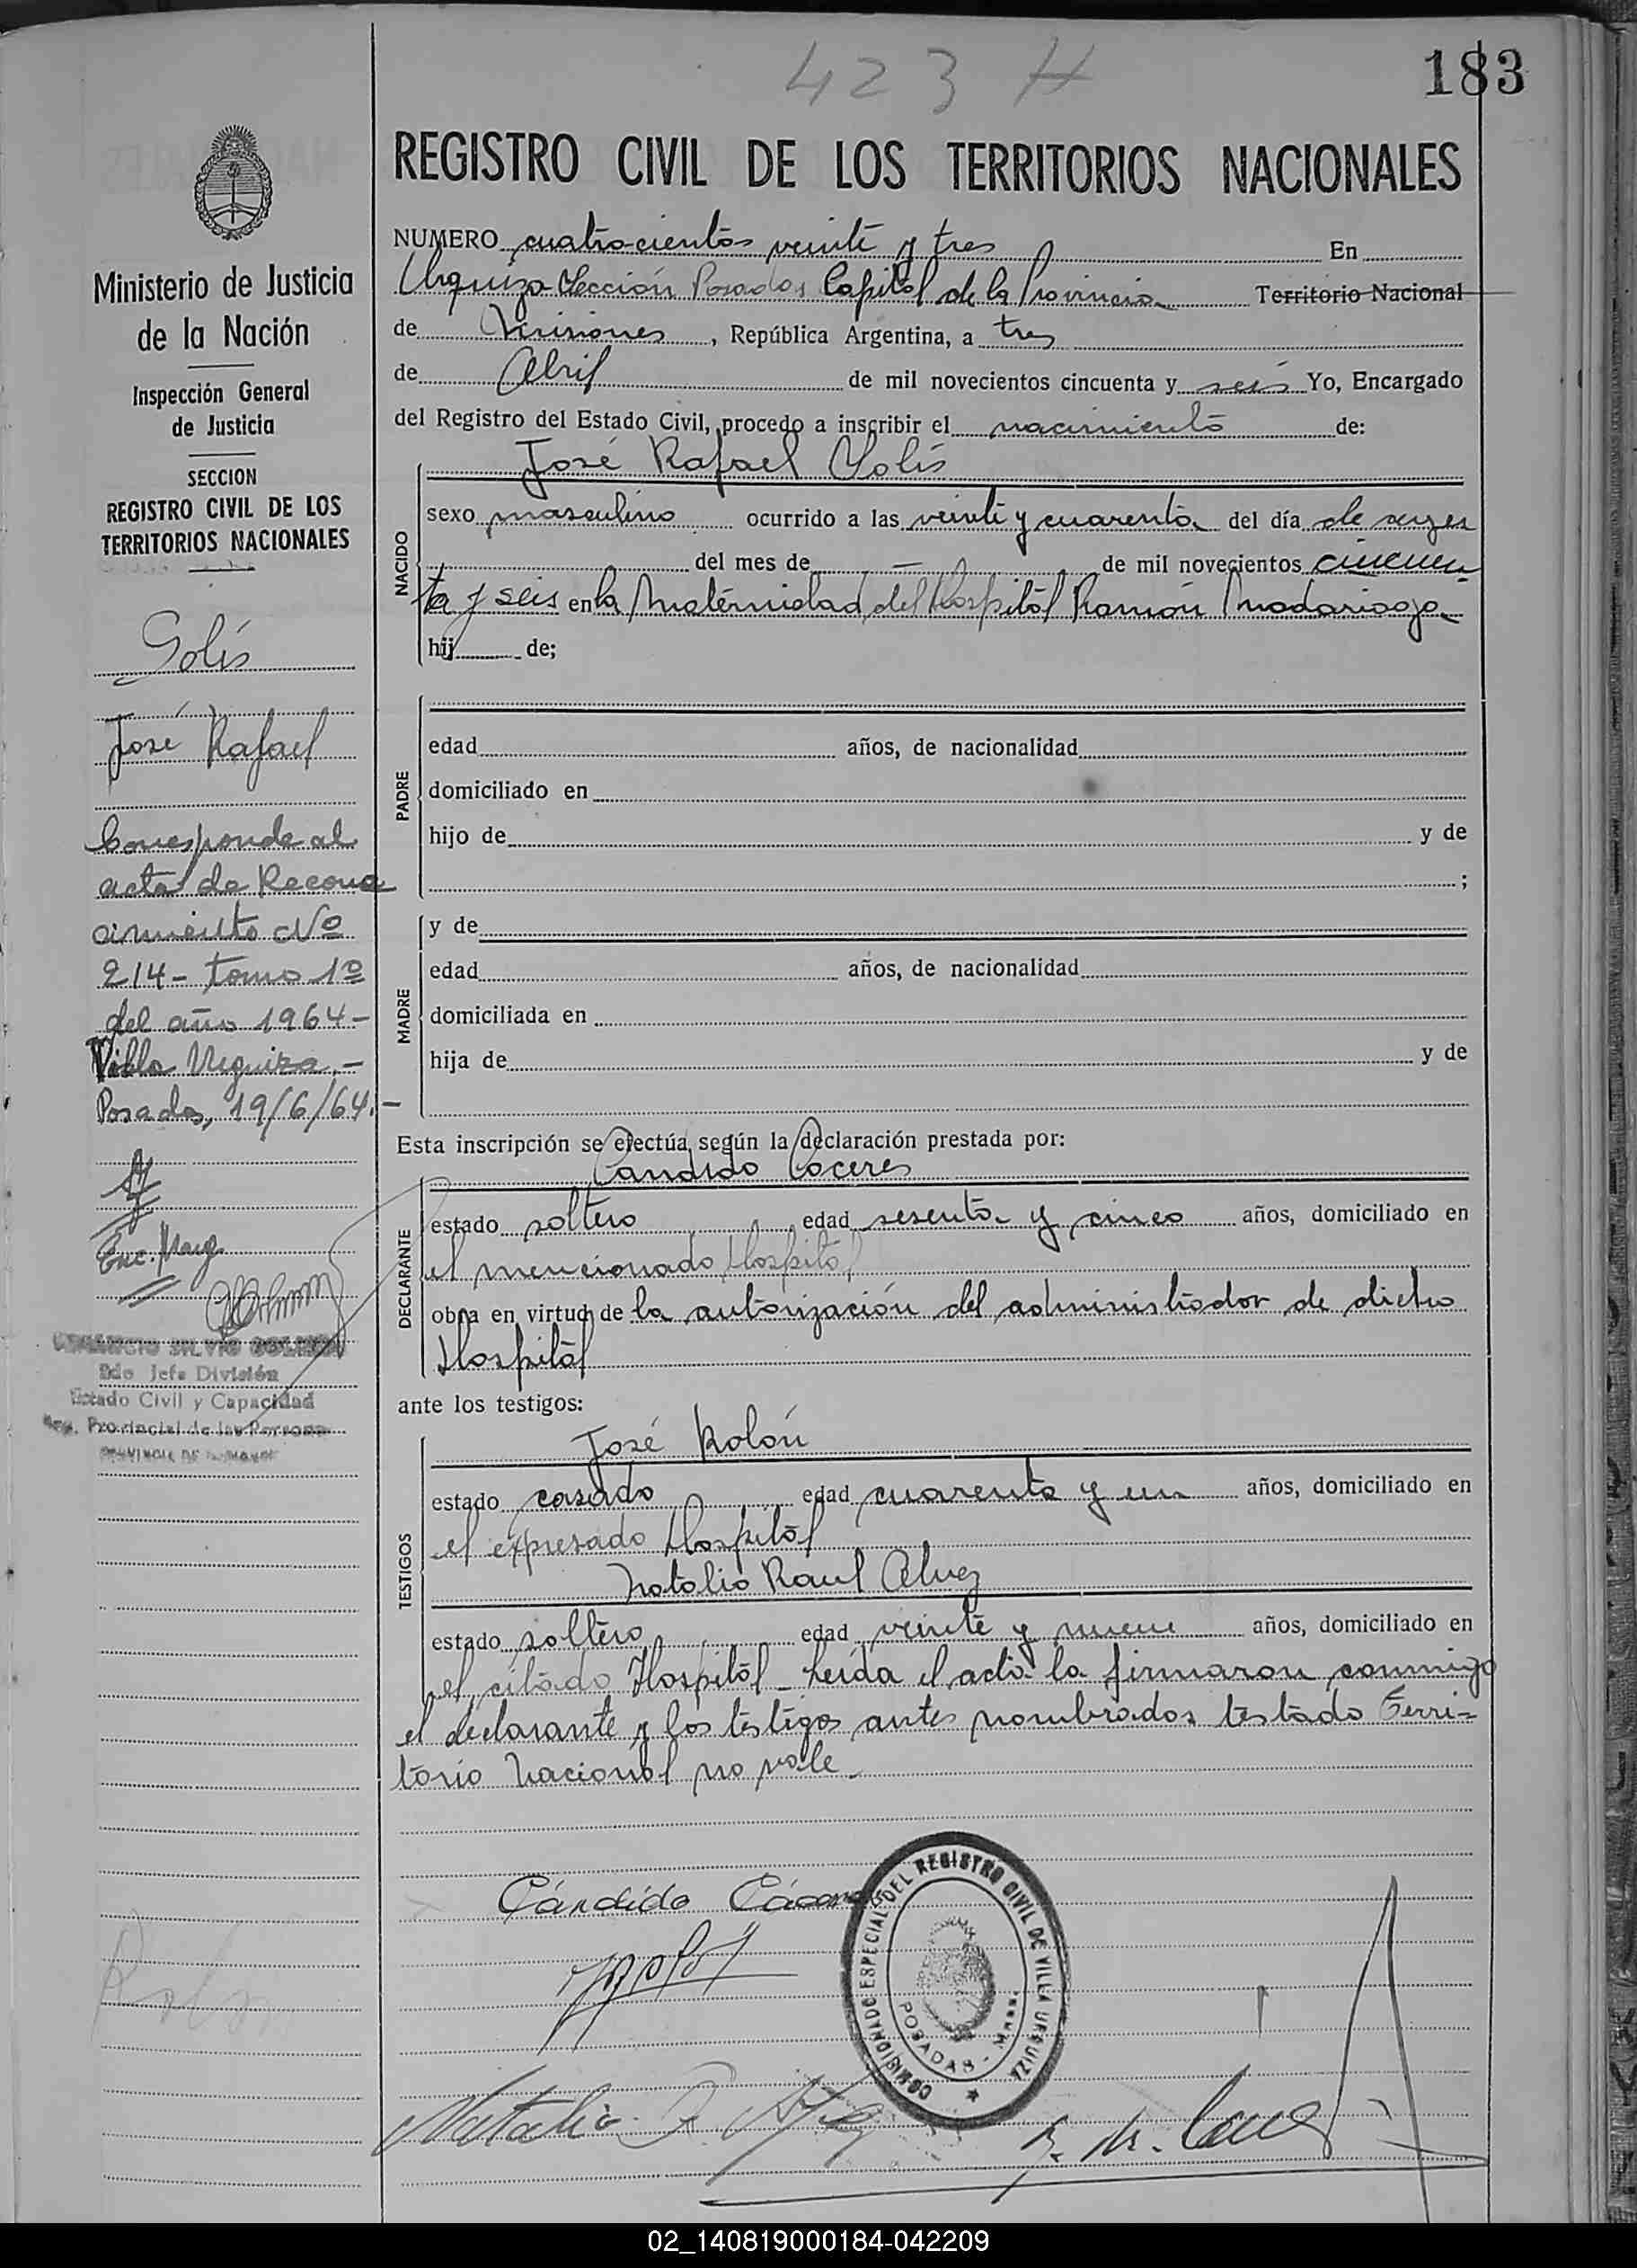 423 H
183
REGISTRO CIVIL DE LOS TERRITORIOS NACIONALES
Ministerio de Justicia
de la Nación
Inspección General
de Justicia
SECCION
REGISTRO CIVIL DE LOS
TERRITORIOS NACIONALES
Solís
José Rafael
Corresponde al
acta de Recono
cimiento Nº
214 - tomo 1º
del año 1964 -
Villa Urquiza. -
Posadas, 19/6/64. -
Enc. Marg.
Jefe División
Estado Civil y Capacidad
Provincial de las Personas
NUMERO cuatrocientos veinte y tres En
Urquiza Sección Posadas Capital de la Provincia Territorio Nacional
de Misiones, República Argentina, a tres
de Abril de mil novecientos cincuenta y seis Yo, Encargado
del Registro del Estado Civil, procedo a inscribir el nacimiento de:
José Rafael Solís
NACIDO
sexo masculino ocurrido a las veinte y cuarenta del día de
del mes de — de mil novecientos cincuen
ta y seis en la Maternidad del Hospital Ramón Madariaga
hij de;
PADRE
edad años, de nacionalidad
domiciliado en
hijo de y de
;
MADRE
y de
edad años, de nacionalidad
domiciliada en
hija de y de
Esta inscripción se efectúa según la declaración prestada por:
Candido Caceres
DECLARANTE
estado soltero edad sesenta y cinco años, domiciliado en
el mencionado Hospital
obra en virtud de la autorización del administrador de dicho
Hospital
ante los testigos:
José Rolón
TESTIGOS
estado casado edad cuarenta y un años, domiciliado en
el expresado Hospital
Natalio Raul Alvez
estado soltero edad veinte y nueve años, domiciliado en
el citado Hospital - Leída el acta la firmaron conmigo
el declarante y los testigos antes nombrados testado Terri=
torio Nacional no vale -
Cándido Cáceres
COMISIONADO ESPECIAL DEL REGISTRO CIVIL DE VILLA URQUIZA
POSADAS - Mnes.
Natalio R. Alvez
02_140819000184-042209